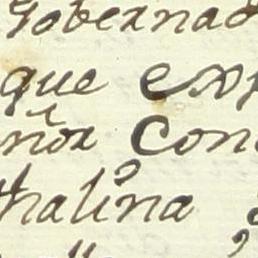 Gobernad
que exp
ñor Con
thalina